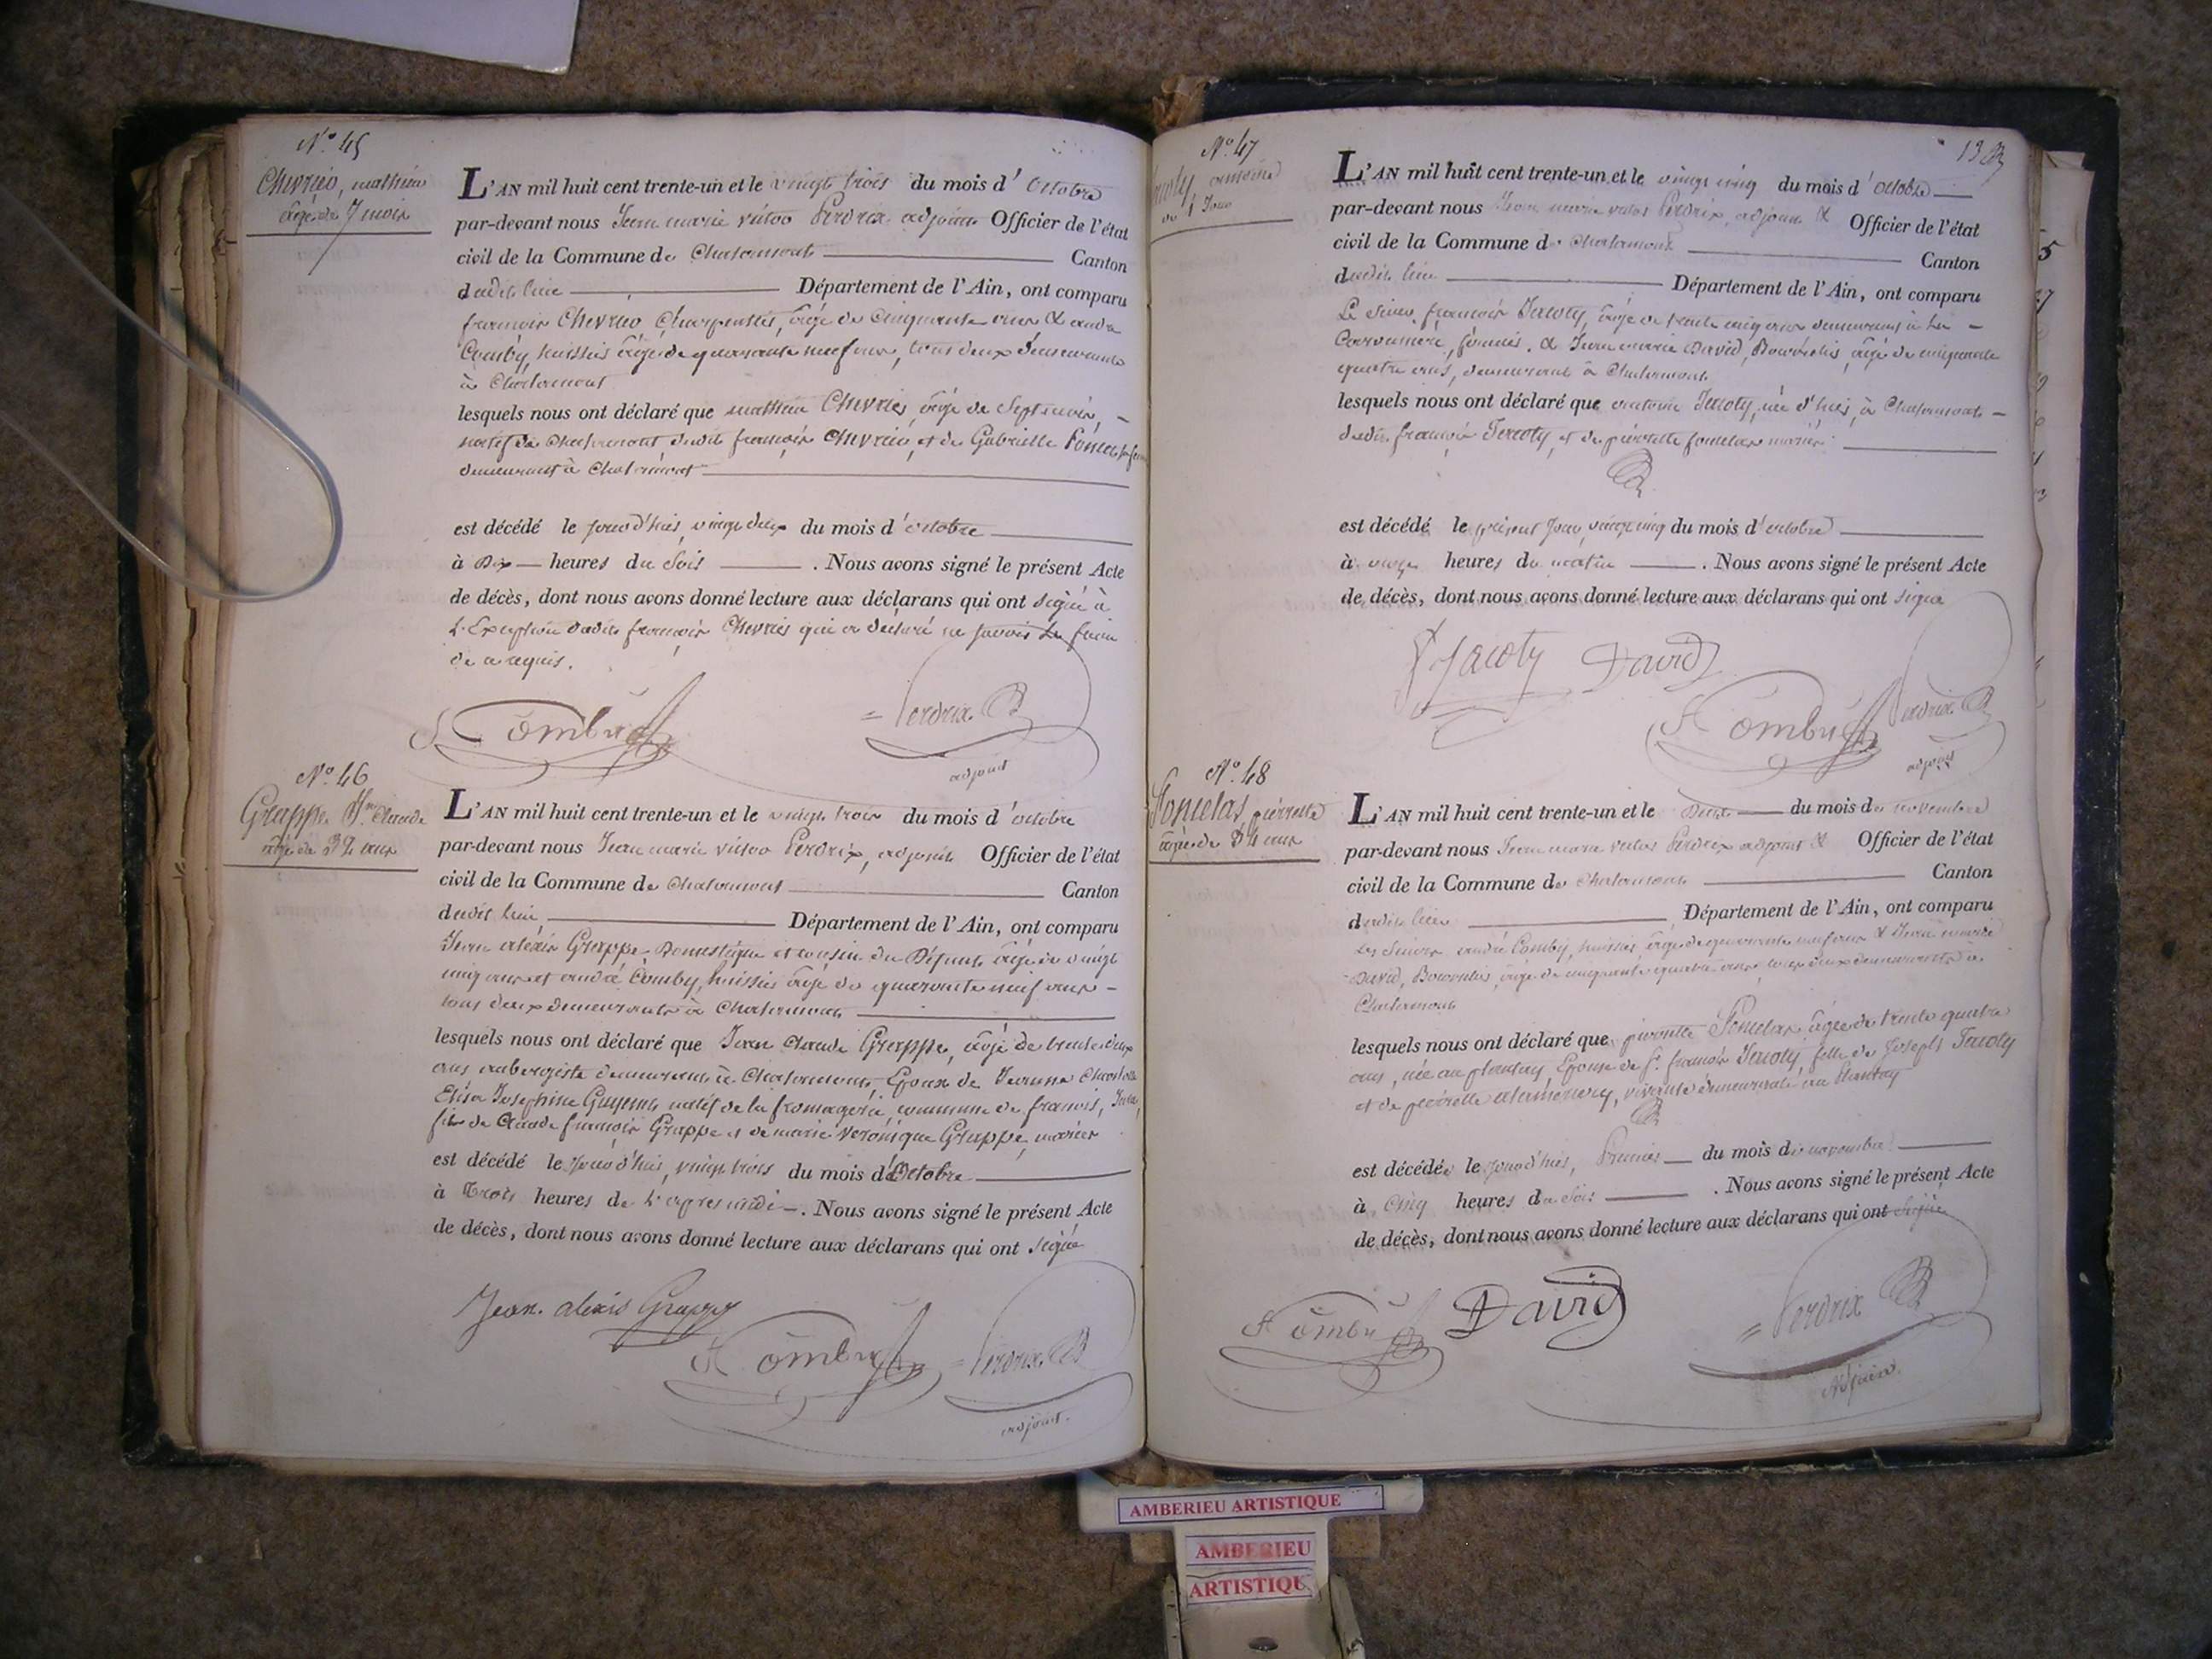 N° 45
Chevrier, mathieu
âgé de 7 mois
L'AN mil huit cent trente-un et le vingt trois du mois d'octobre
par-devant nous Jean marie victor Perdrix adjoint Officier de l'état
civil de la Commune de Chalamont Canton
dudit lieu Département de l'Ain, ont comparu
françois Chevrier Charpentier, âgé de Cinquante ans & andré
Comby, huissier âgé de quarante neuf ans, tous deux demeurants
à Chalamont
lesquels nous ont déclaré que mathieu Chevrier, âgé de Sept mois,
natif de Chalamont dudit françois Chevrier, et de Gabrielle
demeurant à Chalamont
est décédé le jour d'hier, vingt deux du mois d'octobre
à Dix heures du soir . Nous avons signé le présent Acte
de décès, dont nous avons donné lecture aux déclarans qui ont signé à
L'Exception dudit françois Chevrier qui a déclaré ne savoir le faire
de ce requis.
Comby Perdrix
adjoint
N° 46
Grappe Jn Claude
âgé de 32 ans
L'AN mil huit cent trente-un et le vingt trois du mois d'octobre
par-devant nous Jean marie victor Perdrix, adjoint Officier de l'état
civil de la Commune de Chalamont Canton
dudit lieu Département de l'Ain, ont comparu
Jean alexis Grappe Domestique et cousin du Défunt âgé de vingt
cinq ans et andré Comby, huissier âgé de quarante neuf ans
tous deux demeurants à Chalamont
lesquels nous ont déclaré que Jean Claude Grappe, âgé de trente deux
ans aubergiste demeurant à Chalamont, Epoux de Jeanne
Elisa Josephine natif de la fromagerie commune de francis, Jura,
fils de Claude françois Grappe et de marie veronique Grappe, mariés
est décédé le jour d'hui, vingt trois du mois d'Octobre
à Trois heures de L'apres midi . Nous avons signé le présent Acte
de décès, dont nous avons donné lecture aux déclarans qui ont signé
Jean. alexis Grappe
A Comby Perdrix
adjoint
13
N° 47
Jacoty, antoine
de 1 Jour
L'AN mil huit cent trente-un et le vingt cinq du mois d'octobre
par-devant nous Jean marie victor Perdrix, adjoint & Officier de l'état
civil de la Commune de Chalamont Canton
dudit lieu Département de l'Ain, ont comparu
Le Sieur françois Jacoty, âgé de trente cinq ans demeurant à La
fermier. & Jean marie David, Bourrelier, âgé de cinquante
quatre ans, demeurant à Chalamont
lesquels nous ont déclaré que antoine Jacoty, né d'hier, à Chalamont
dudit françois Jacoty, et de pierrette fontelas mariés
est décédé le présent Jour, vingt cinq du mois d'octobre
à onze heures du matin . Nous avons signé le présent Acte
de décès, dont nous avons donné lecture aux déclarans qui ont signé
Jacoty David
A Comby Perdrix
adjoint
N° 48
pierrette
âgée de 34 ans
L'AN mil huit cent trente-un et le Deux du mois de novembre
par-devant nous Jean marie victor Perdrix adjoint & Officier de l'état
civil de la Commune de Chalamont Canton
dudit lieu Département de l'Ain, ont comparu
Les Sieurs andré Comby, huissier, âgé de quarante neuf ans & Jean marie
David, Bourrelier, âgé de cinquante quatre ans tous deux demeurants à
Chalamont
lesquels nous ont déclaré que pierrette âgée de trente quatre
ans, née au plantay Epouse de Sr. françois Jacoty fille de Joseph
et de pierrette vivante demeurant au Plantay
est décédée le jour d'hier, Premier du mois de novembre
à Cinq heures du soir . Nous avons signé le présent Acte
de décès, dont nous avons donné lecture aux déclarans qui ont signé
A Comby David Perdrix
Adjoint
AMBERIEU ARTISTIQUE
AMBERIEU
ARTISTIQUE